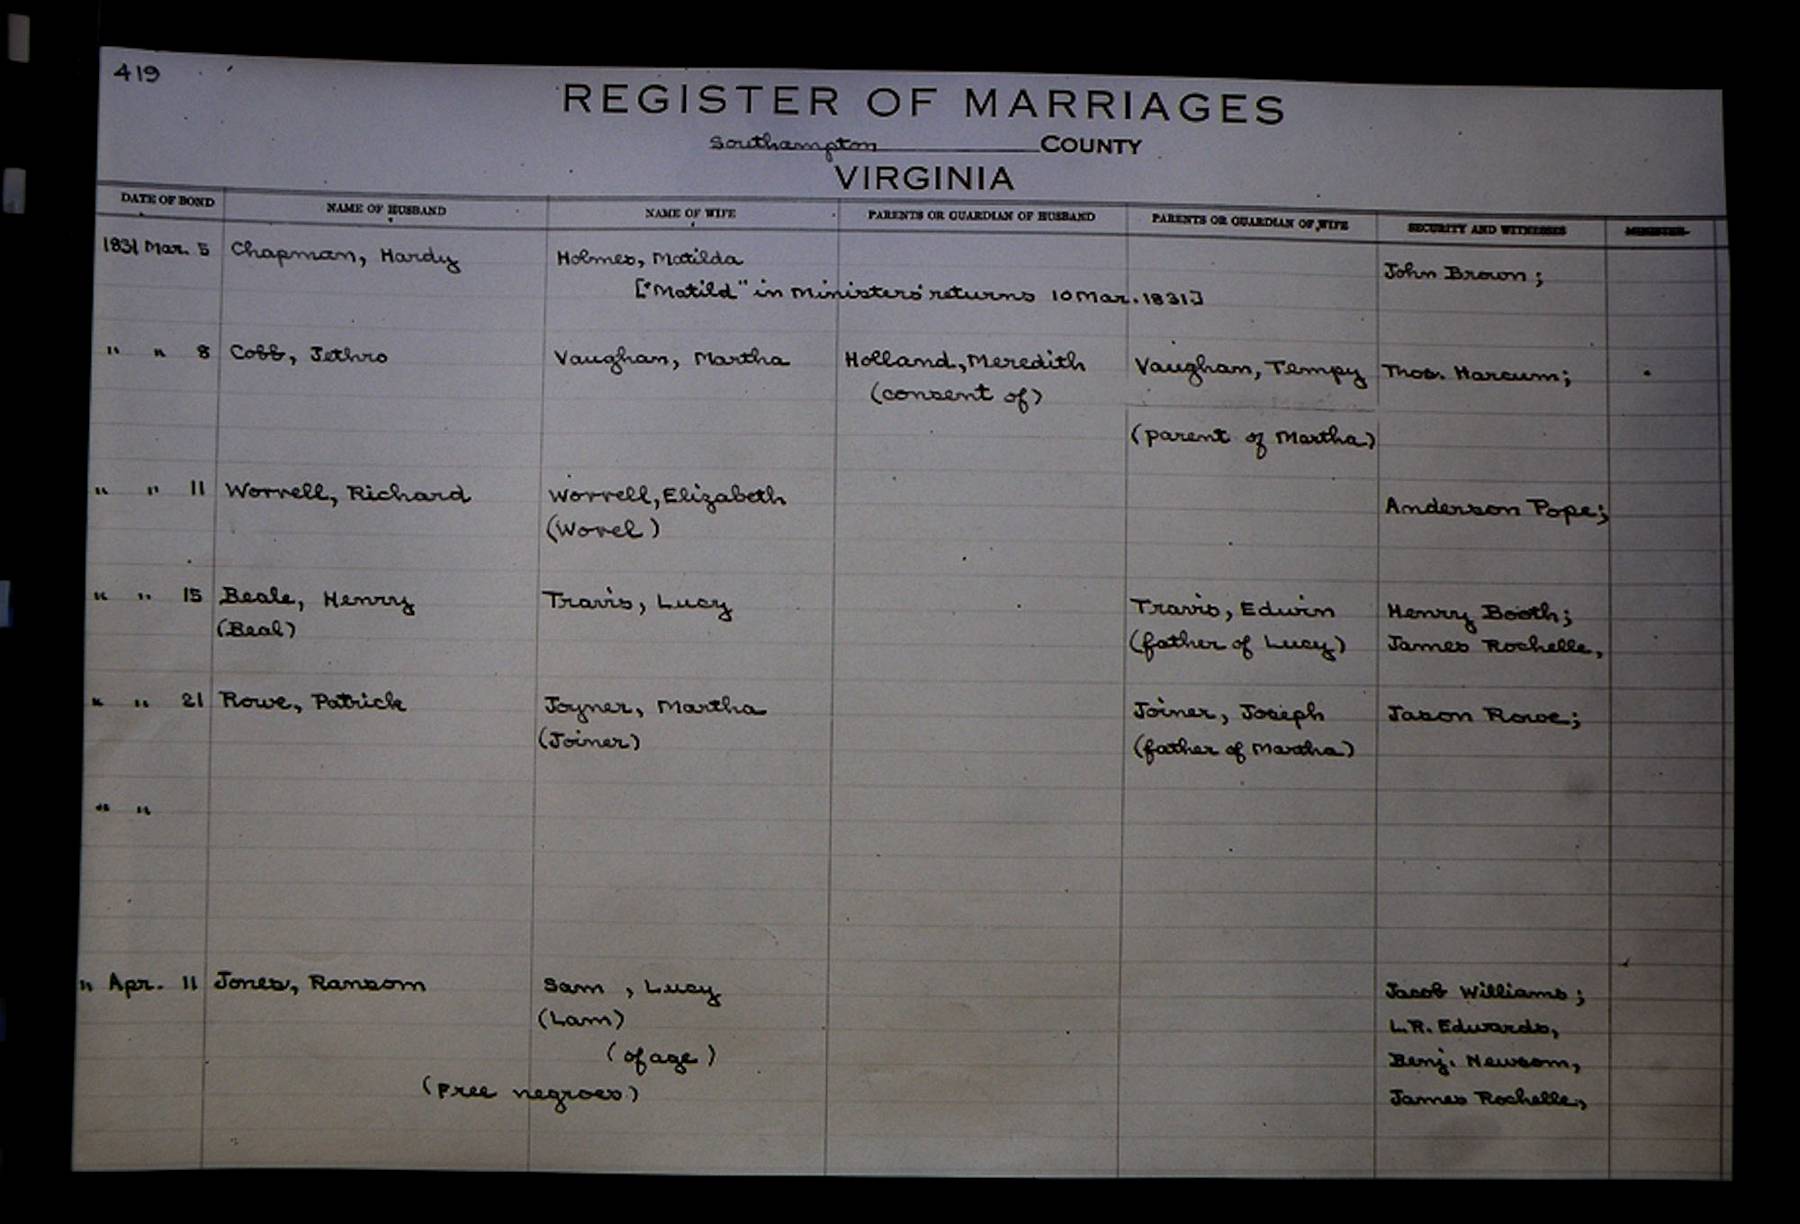 419
REGISTER OF MARRIAGES
Southampton COUNTY
VIRGINIA
DATE OF BOND NAME OF HUSBAND NAME OF WIFE PARENTS OR GUARDIAN OF HUSBAND PARENTS OR GUARDIAN OF WIFE SECURITY AND WITNESSES MINISTER
1831 Mar. 5 Chapman, Hardy Holmes, Matilda John Brown;
["Matild" in Ministers' returns 10 Mar. 1831]
" " 8 Cobb, Jethro Vaughan, Martha Holland, Meredith Vaughan, Tempy Thos. Harcum;
(consent of)
(parent of Martha)
" " 11 Worrell, Richard Worrell, Elizabeth Anderson Pope;
(Worel)
" " 15 Beale, Henry Travis, Lucy Travis, Edwin Henry Booth;
(Beal) (father of Lucy) James Rochelle,
" " 21 Rowe, Patrick Joyner, Martha Joiner, Joseph Jason Rowe;
(Joiner) (father of Martha)
" "
" Apr. 11 Jones, Ransom Sam , Lucy Jacob Williams;
(Lam) L.R. Edwards,
(of age) Benj. Newsom,
(Free negroes) James Rochelle,